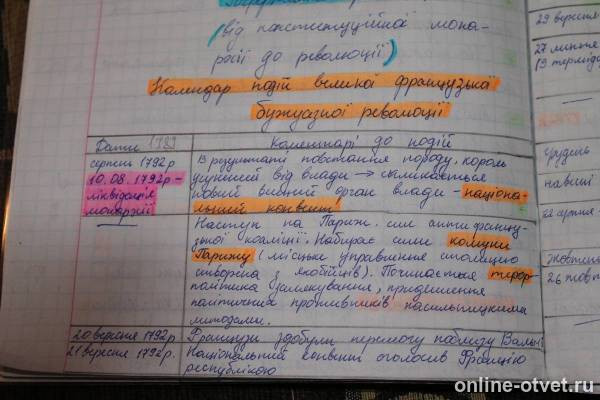 (від конституційної мона-
рхії до революції)
Календар подій великої французька
буржуазної революції
Дати 1789
Коментарі до подій
серпень 1792 р
10.08.1792 р -
ліквідація
монархії
В результаті повстання народу, король
усунений від влади → скликається
новий вищий орган влади - націона-
льний конвент!
Наступ на Париж. сил антифранцу-
зької коаліції. Набирає сили комуни
Парижу (місцеве управління столицею
створена з якобінців). Починається терор-
політика залякування, придушення
політичних противників насильницькими
методами.
20 вересня 1792 р
Французи здобули перемогу поблизу Вальмі
21 вересня 1792 р.
Національний конвент оголосив Францію
республікою
29 вересня
27 липня
(9 термідо
грудень
навесні
22 серпня -
жовтень
26 жовт
online-otvet.ru